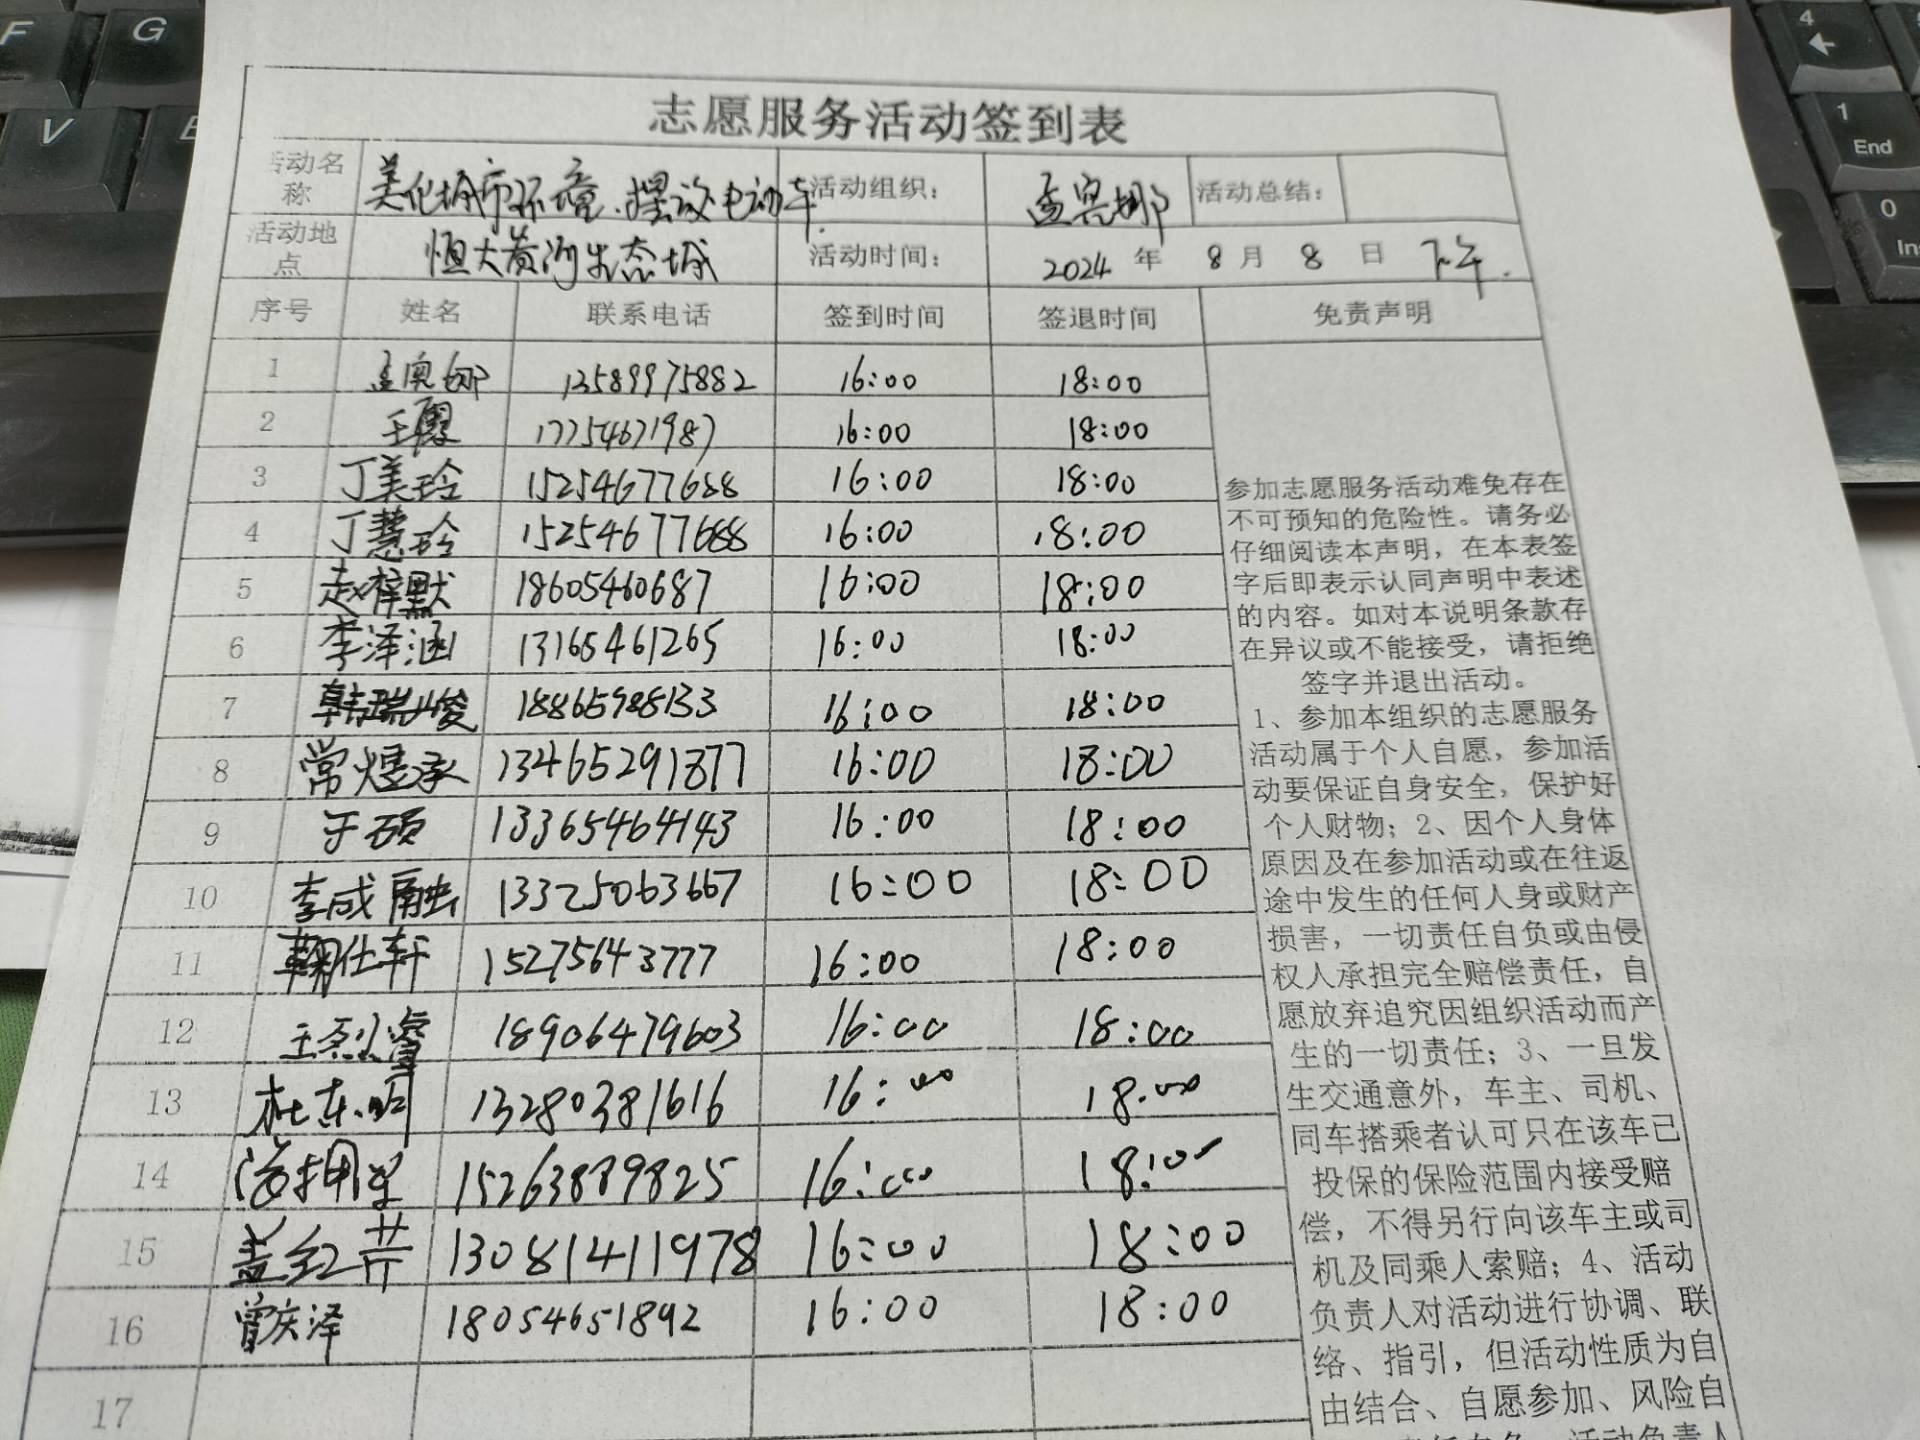 志愿服务活动签到表
活动名称 美化城市环境、摆放电动车. 活动组织： 孟奥娜 活动总结：
活动地点 恒大黄河生态城 活动时间： 2024 年 8 月 8 日 下午.
序号 姓名 联系电话 签到时间 签退时间 免责声明
1 孟奥娜 13589975882 16:00 18:00
2 17254671987 16:00 18:00
3 丁美玲 15254677688 16:00 18:00
4 丁慧玲 15254677688 16:00 18:00
5 赵梓默 18605460687 16:00 18:00
6 李泽涵 13165461265 16:00 18:00
7 韩瑞峻 18865988133 16:00 18:00
8 常煜承 13465291877 16:00 18:00
9 于硕 13365464143 16:00 18:00
10 李成融 13325063667 16:00 18:00
11 鞠仕轩 15275643777 16:00 18:00
12 18906479603 16:00 18:00
13 杜东明 13280381616 16:00 18:00
14 15263889825 16:00 18:00
15 盖红芹 13081411978 16:00 18:00
16 曾庆泽 18054651892 16:00 18:00
17
参加志愿服务活动难免存在
不可预知的危险性。请务必
仔细阅读本声明，在本表签
字后即表示认同声明中表述
的内容。如对本说明条款存
在异议或不能接受，请拒绝
签字并退出活动。
1、参加本组织的志愿服务
活动属于个人自愿，参加活
动要保证自身安全，保护好
个人财物；2、因个人身体
原因及在参加活动或在往返
途中发生的任何人身或财产
损害，一切责任自负或由侵
权人承担完全赔偿责任，自
愿放弃追究因组织活动而产
生的一切责任；3、一旦发
生交通意外，车主、司机、
同车搭乘者认可只在该车已
投保的保险范围内接受赔
偿，不得另行向该车主或司
机及同乘人索赔；4、活动
负责人对活动进行协调、联
络、指引，但活动性质为自
由结合、自愿参加、风险自
F
G
V
4
1
End
0